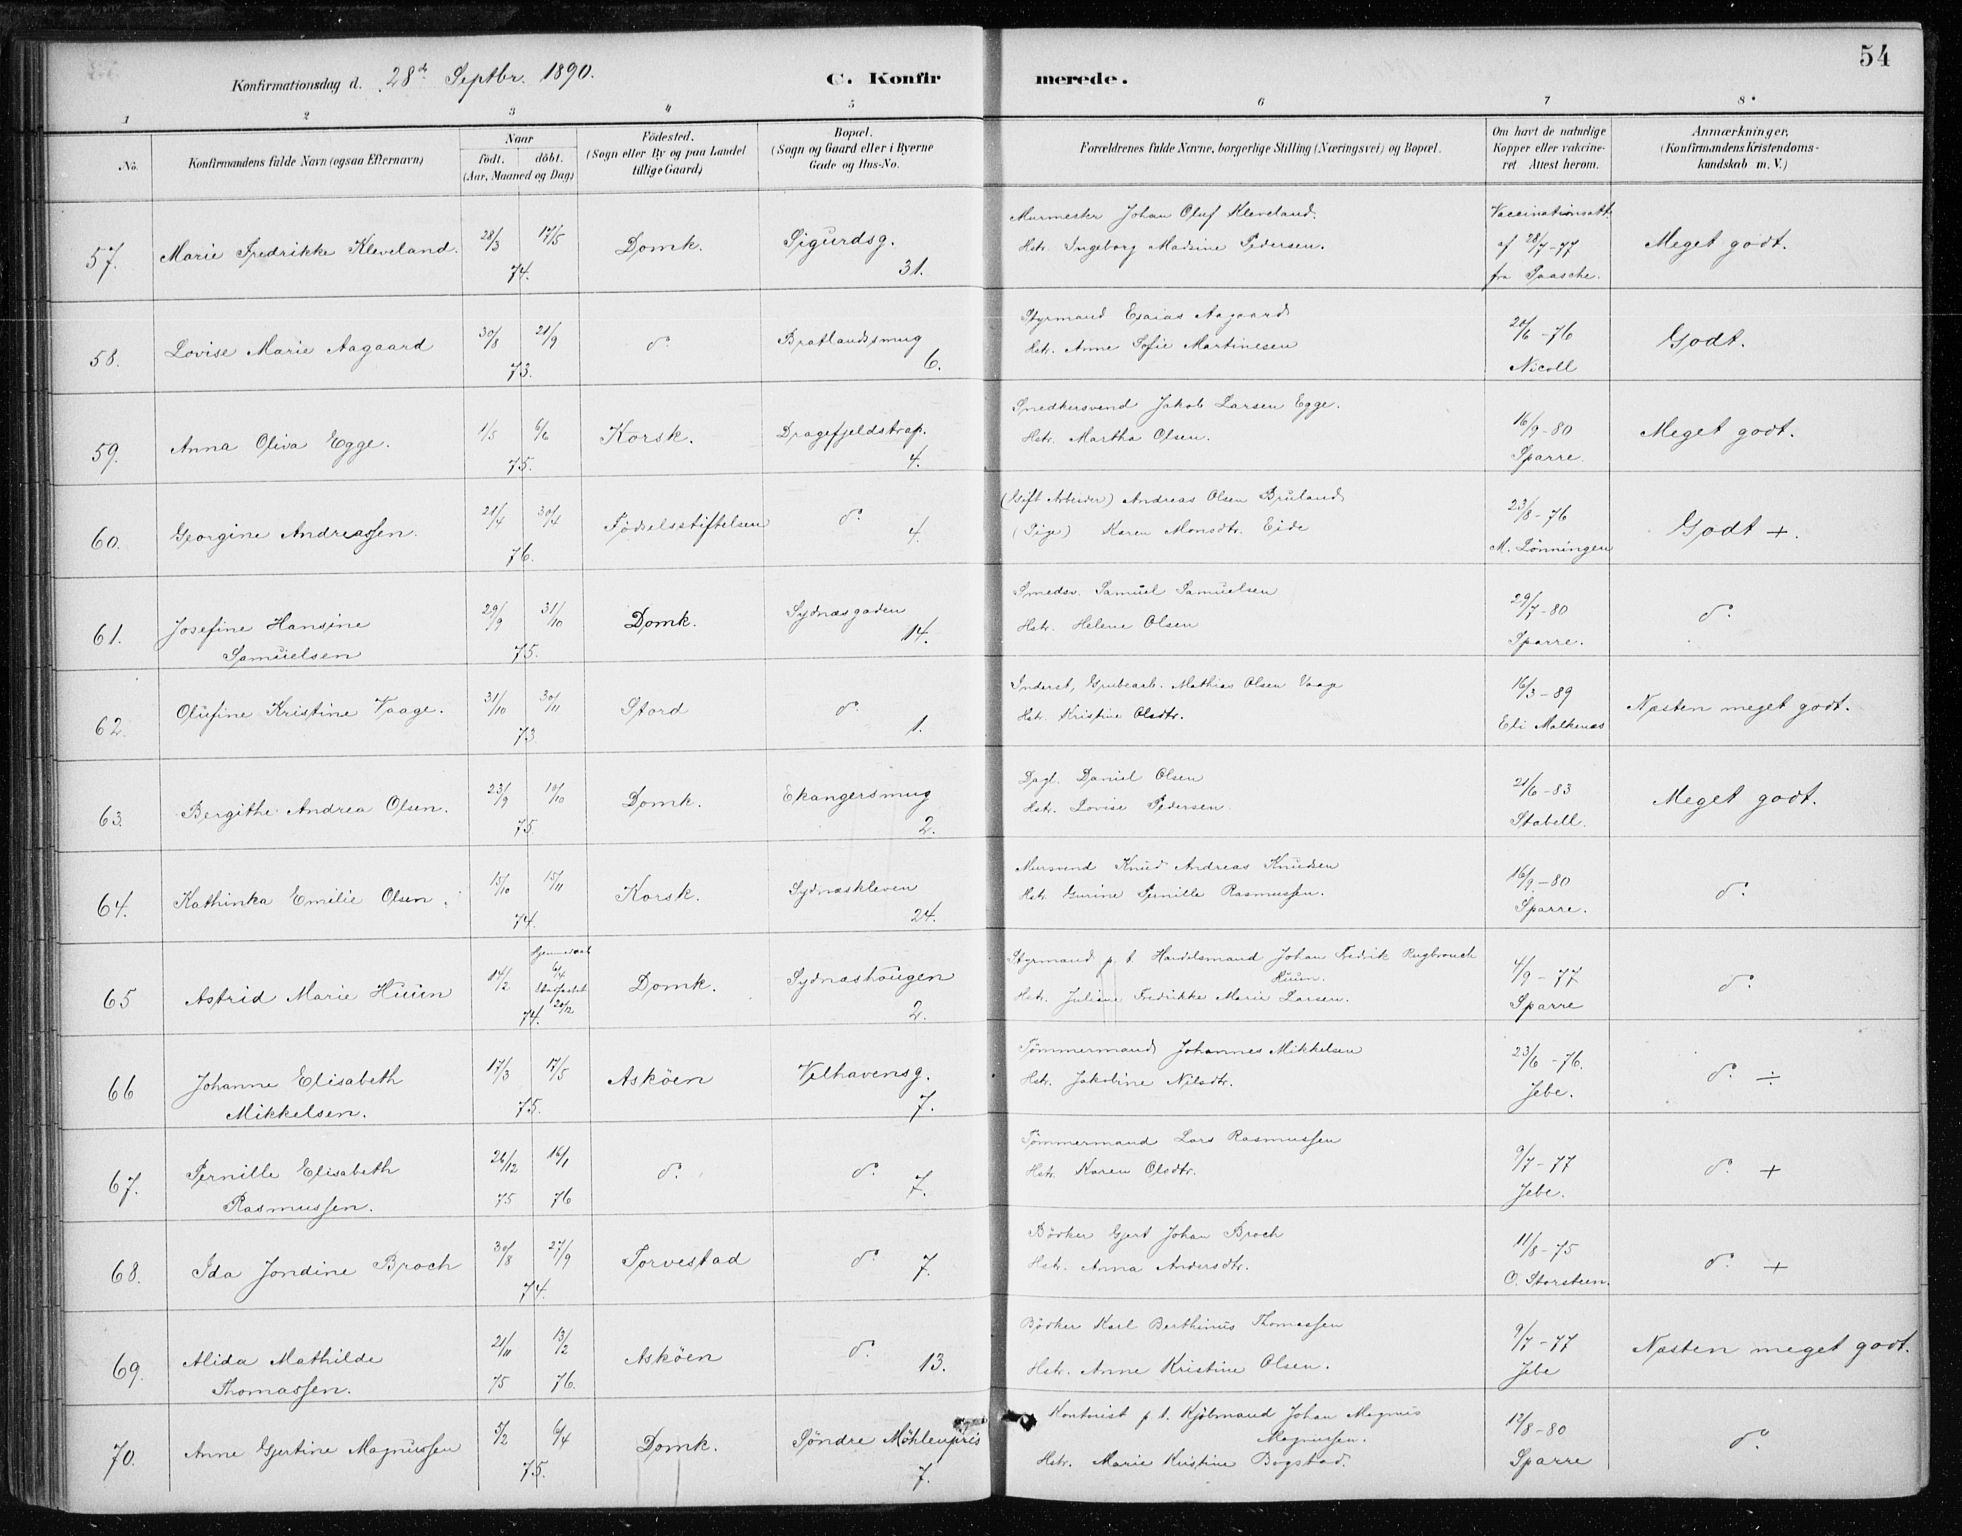 54
Konfirmationsdag d. 28de Septbr. 1890. C. Konfirmerede.
1 2 3 4 5 6 7 8
No. Konfirmandens fulde Navn (ogsaa Efternavn) Naar født. døbt. (Aar, Maaned og Dag) Födested. (Sogn eller By og paa Landet tillige Gaard) Bopæl. (Sogn og Gaard eller i Byerne Gade og Hus-No. Forældrenes fulde Navne, borgerlige Stilling (Næringsvei) og Bopæl. Om havt de naturlige Kopper eller vakcineret. Attest herom. Anmærkninger. (Konfirmandens Kristendomskundskab m. V.)
57. Marie Fredrikke Kleveland. 28/3 17/5 74. Domk. Sigurdsg. 31. Murmester Johan Oluf Kleveland. Hstr. Ingeborg Madsine Pedersen. Vaccinationsatt. af 28/7-77 fra Paasche. Meget godt.
58. Lovise Marie Aagaard 30/8 21/9 73. do Bratlandssmug 6. Styrmand Esaias Aagaard Hstr. Anne Sofie Martinesen 20/6-76 Nicoll Godt.
59. Anna Oliva Egge. 1/5 6/6 75. Korsk. Dragefjeldstrap. 4. Snedkersvend Jakob Larsen Egge. Hstr. Martha Olsen. 16/9-80 Sparre. Meget godt.
60. Georgine Andreassen. 21/4 30/4 76. Fødselsstiftelsen do 4. (Gift Arbeider) Andreas Olsen Bruland (Pige) Karen Monsdtr. Eide 23/8-76 M. Lönningen Godt +.
61. Josefine Hansine Samuelsen 29/9 31/10 75. Domk. Sydnæsgaden 14. Smedsv. Samuel Samuelsen Hstr. Helene Olsen 29/7-80 Sparre. do
62. Olufine Kristine Vaage. 31/10 30/11 73. Stord do 1. Inderst, Grubearb. Mathias Olsen Vaage Hstr. Kristine Olsdtr. 16/3-89 Eli Malkenæs Næsten meget godt.
63. Bergithe Andrea Olsen. 23/9 10/10 75. Domk. Ekangersmug 2. Dagl. Daniel Olsen Hstr. Lovise Pedersen. 21/6-83 Stabell. Meget godt.
64. Kathinka Emilie Olsen. 15/10 15/11 74. Korsk. Sydnæskleven 24. Mursvend Knud Andreas Knudsen Hstr. Gurine Pernille Rasmussen. 16/9-80 Sparre. do
65 Astrid Marie Huun 14/2 Hjemmedøbt 6/4 Stadfæstet 20/12 74. Domk. Sydnæshougen 2. Styrmand p. t. Handelsmand Johan Fredrik Rugbrouch Huun. Hstr. Juliane Fredrikke Marie Larsen. 4/9-77 Sparre do
66 Johanne Elisabeth Mikkelsen. 17/3 17/5 75. Asköen Velhavensg. 7. Tømmermand Johannes Mikkelsen Hstr. Jakobine Nilsdtr. 23/6-76. Jebe. do ÷
67. Pernille Elisabeth Rasmussen. 26/12 75 16/1 76 do do 7. Tømmermand Lars Rasmussen Hstr. Karen Olsdtr. 9/7-77 Jebe. do +
68. Ida Jondine Broch 30/8 27/9 74. Torvestad do 7. Bödker Gjert Johan Broch Hstr. Anna Andersdtr. 11/8-75 O. Storsteen. do +
69. Alida Mathilde Thomassen. 21/11 75 13/2 76. Asköen do 13. Bödker Karl Berthinus Thomassen Hstr. Anne Kristine Olsen. 9/7-77 Jebe Næsten meget godt.
70. Anne Gjertine Magnussen 5/2 6/4 75. Domk. Söndre Möhlenpris 7. Kontorist p. t. Kjöbmand Johan Magnus Magnussen. Hstr. Marie Kristine Bogstad. 12/8-80 Sparre do